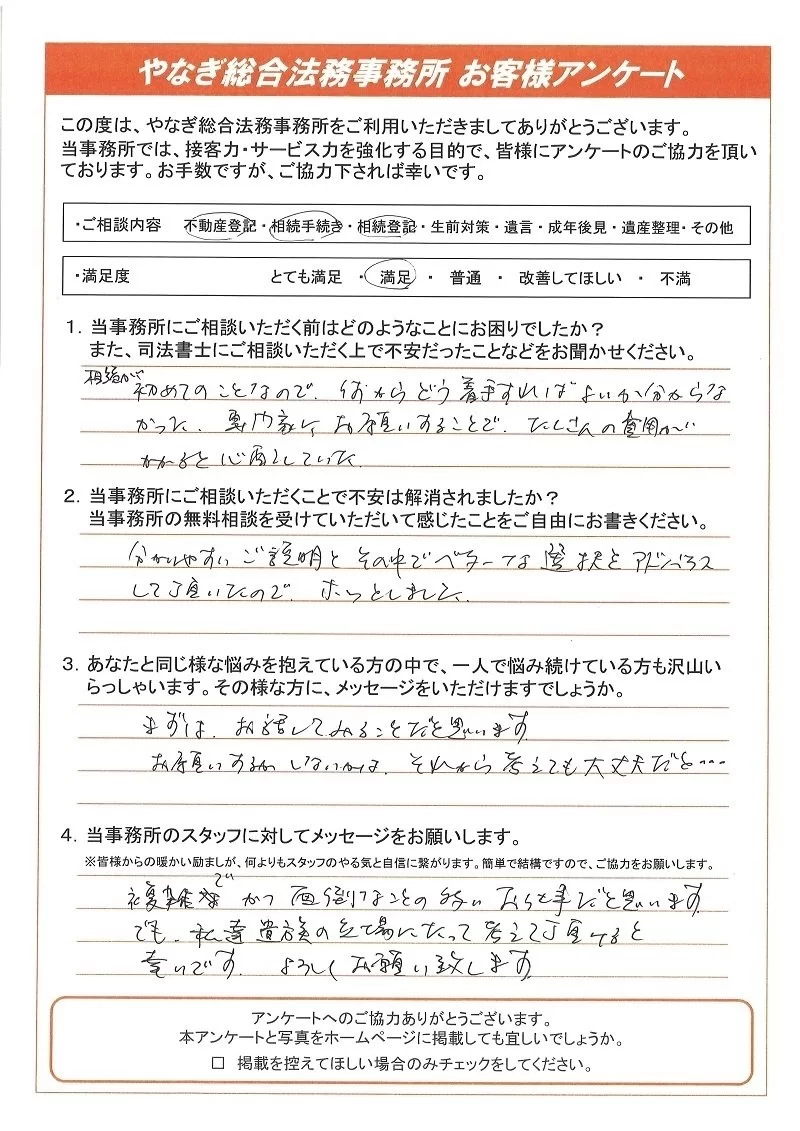 やなぎ総合法務事務所 お客様アンケート
この度は、やなぎ総合法務事務所をご利用いただきましてありがとうございます。
当事務所では、接客力・サービス力を強化する目的で、皆様にアンケートのご協力を頂い
ております。お手数ですが、ご協力下されば幸いです。
・ご相談内容 不動産登記・相続手続き・相続登記・生前対策・遺言・成年後見・遺産整理・その他
・満足度 とても満足 ・ 満足 ・ 普通 ・ 改善してほしい ・ 不満
1. 当事務所にご相談いただく前はどのようなことにお困りでしたか？
また、司法書士にご相談いただく上で不安だったことなどをお聞かせください。
相続が
初めてのことなので、何からどう着手すればよいか分からな
かった。専門家にお願いすることで、たくさんの費用が
かかると心配していた。
2. 当事務所にご相談いただくことで不安は解消されましたか？
当事務所の無料相談を受けていただいて感じたことをご自由にお書きください。
分かりやすいご説明とその中でベターな選択をアドバイス
して頂いたので、ホッとしました。
3. あなたと同じ様な悩みを抱えている方の中で、一人で悩み続けている方も沢山い
らっしゃいます。その様な方に、メッセージをいただけますでしょうか。
まずは、お話してみることだと思います
お願いするかしないかは、それから考えても大丈夫だと…
4. 当事務所のスタッフに対してメッセージをお願いします。
※皆様からの暖かい励ましが、何よりもスタッフのやる気と自信に繋がります。簡単で結構ですので、ご協力をお願いします。
複雑でかつ面倒なことの多いお仕事だと思います
でも、私達遺族の立場にたって考えて頂けると
幸いです。よろしくお願い致します
アンケートへのご協力ありがとうございます。
本アンケートと写真をホームページに掲載しても宜しいでしょうか。
□ 掲載を控えてほしい場合のみチェックをしてください。